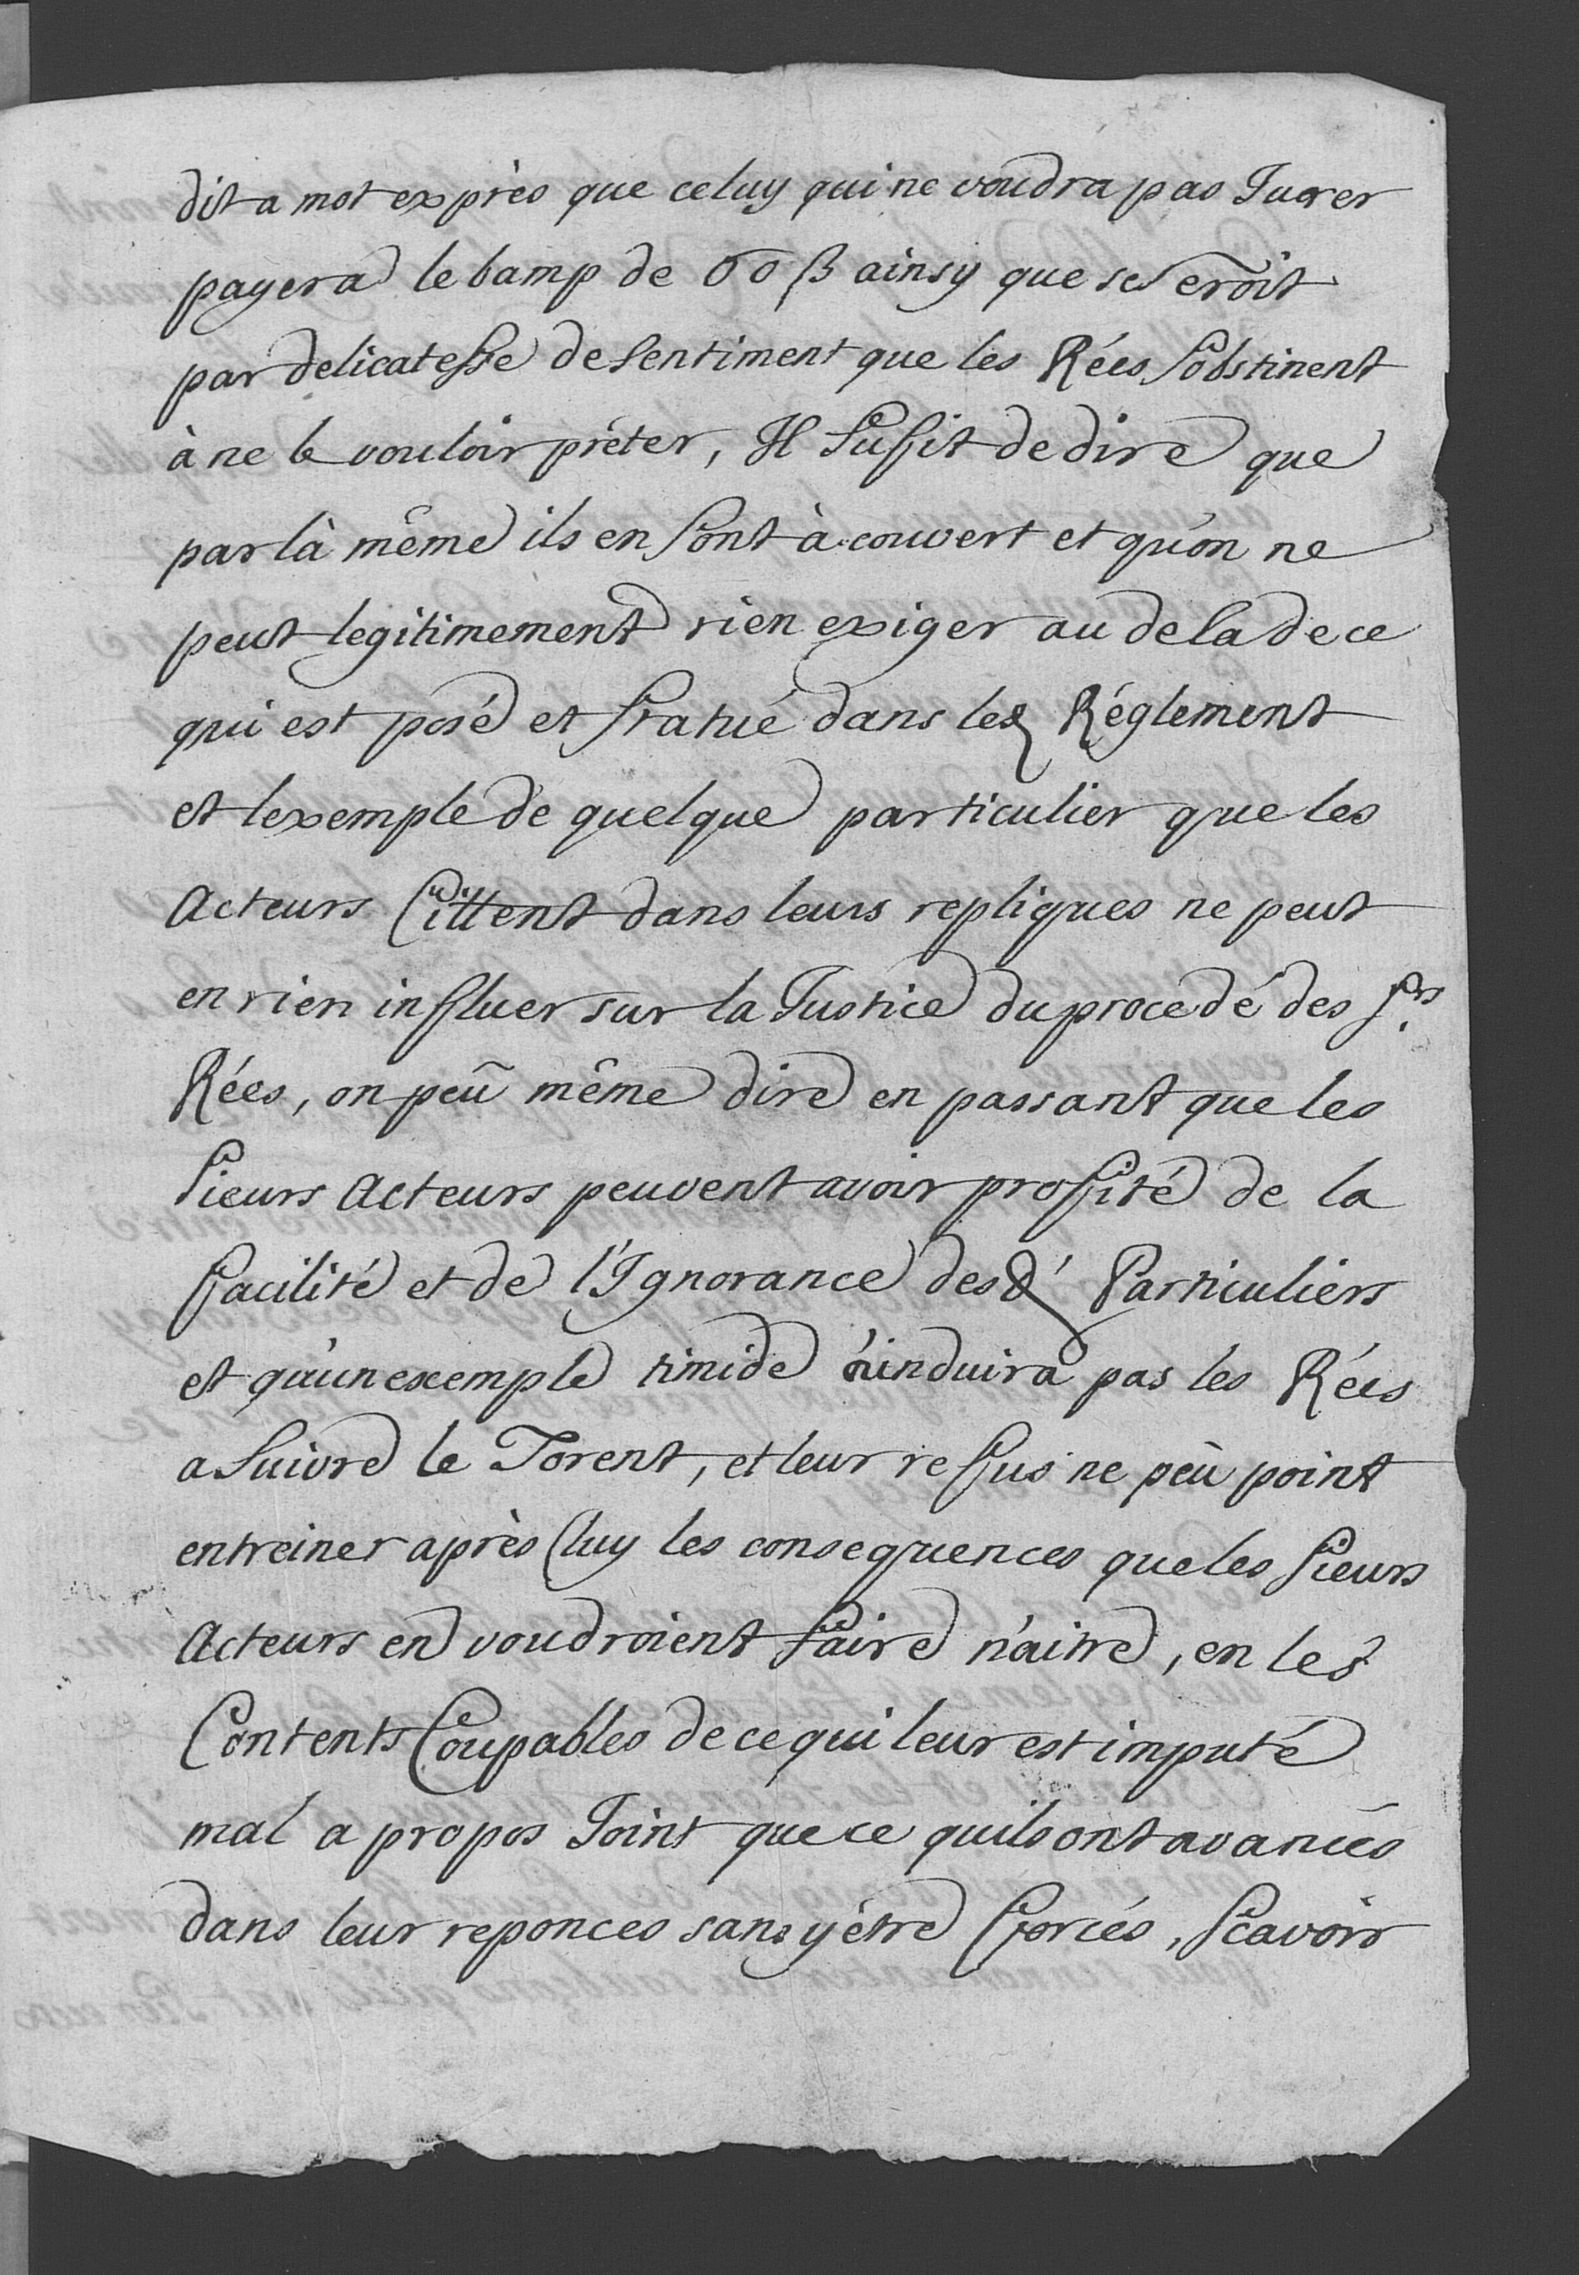 dit a mot exprès que celuy qui ne voudra pas Jurer
payera le bamp de 60 ß ainsy que se seroit
par delicatesse de sentiment que les Rées s'obstinent
à ne le vouloir préter, Il suffit de dire que
par là même ils en sont à couvert et qu'on ne
peut legitimement rien exiger au dela de ce
qui est posé et statué dans les Réglement
et lexemple de quelque particulier que les
Acteurs Cittent dans leurs repliques ne peut
en rien influer sur la Justice du procedé des Srs
Rées, on peu même dire en passant que les
Sieurs Acteurs peuvent avoir profité de la
facilité et de l'Ignorance des d' Particuliers
et qu'un exemple timide n'induira pas les Rées
a Suivre le Torent, et leur refus ne peu point
entreiner après luy les consequences que les Sieurs
Acteurs en voudroient faire n'aitre, en les
Contents Coupables de ce qui leur est imputé
mal a propos Joint que ce quils ont avancés
dans leur reponces sans y être forcés, Scavoir